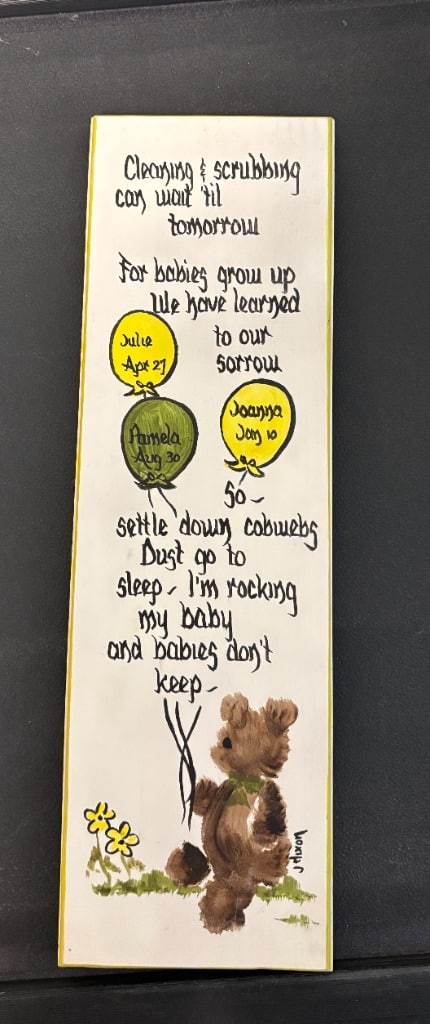 Cleaning & scrubbing
can wait 'til
tomorrow
For babies grow up
We have learned
to our
sorrow
Julie
Apr 27
Pamela
Aug 30
Joanna
Jan 10
So -
settle down cobwebs
Dust go to
sleep - I'm rocking
my baby
and babies don't
keep -
J Nixon